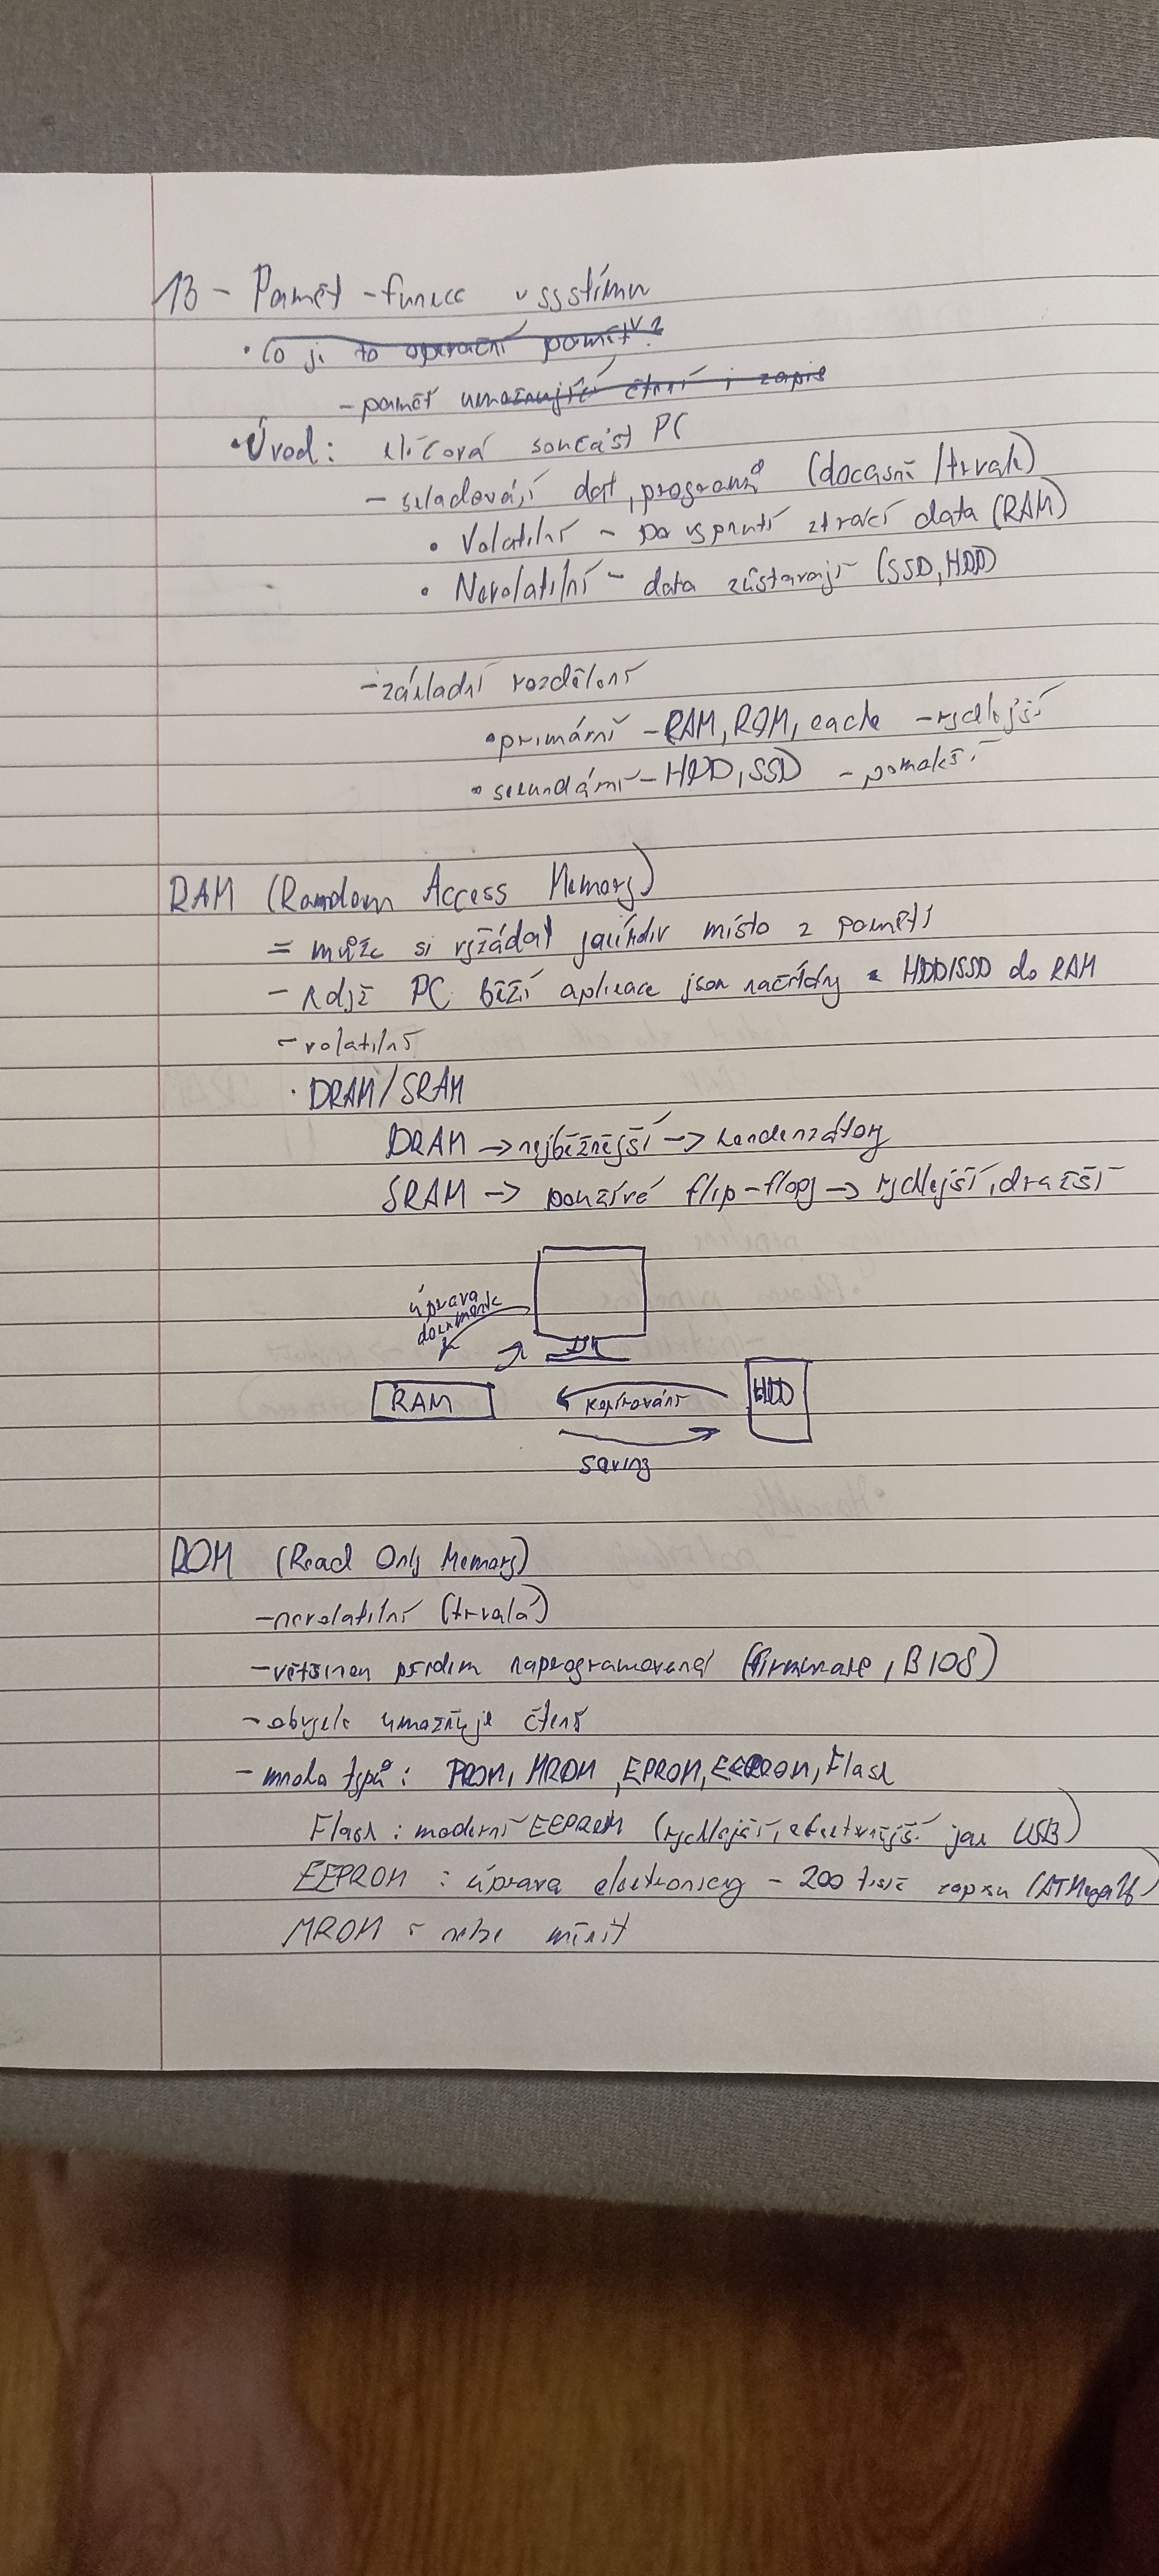 13 - Paměť - funkce v systému
• Co je to operační paměť?
- paměť umožnující čtení i zapis
• Úvod: klíčová součást PC
- skladování dat, programů (docasně/trvale)
• Volatilní - Po vypnutí ztrácí data (RAM)
• Nevolatilní - data zůstavají (SSD, HDD)
- základní rozdělení
• primární - RAM, ROM, cache - rychlejší
• sekundární - HDD, SSD - pomalší
RAM (Random Access Memory)
= může si vyžádat jakékdiv místo z paměti
- Když PC běží aplikace jsou načítány z HDD/SSD do RAM
- volatilní
• DRAM/SRAM
DRAM -> nejběžnější -> kondenzátory
SRAM -> používá flip-flopy -> rychlejší, dražší
úprava
dokumentu
RAM
kopírování
HDD
saving
ROM (Read Only Memory)
- nevolatilní (trvalá)
- většinou předem naprogramovaná (firmware, BIOS)
- obvykle umožňuje čtení
- mnoho typů: PROM, MROM, EPROM, EEPROM, Flash
Flash: moderní EEPROM (rychlejší, efektivnější jak USB)
EEPROM: úprava elektronicky - 200 tisíc zápisu
MROM: nelze měnit